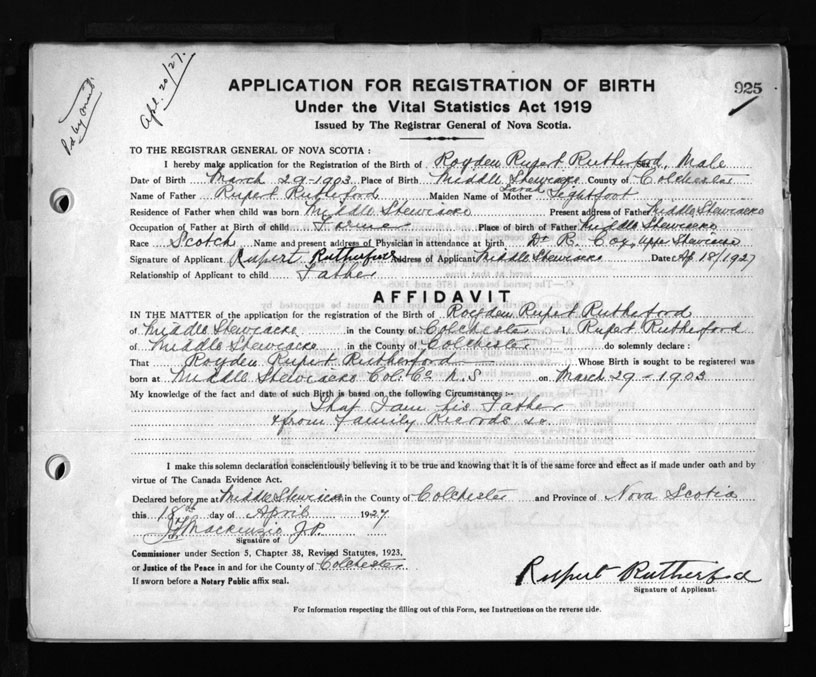 Pd by Ont.
Apl. 20/27.
925
APPLICATION FOR REGISTRATION OF BIRTH
Under the Vital Statistics Act 1919
Issued by The Registrar General of Nova Scotia.
TO THE REGISTRAR GENERAL OF NOVA SCOTIA:
I hereby make application for the Registration of the Birth of Royden Rupert Rutherford, Sex Male
Date of Birth March 29-1903 Place of Birth Middle Stewiacke County of Colchester
Name of Father Rupert Rutherford Maiden Name of Mother Sarah Lightfoot
Residence of Father when child was born Middle Stewiacke Present address of Father Middle Stewiacke
Occupation of Father at Birth of child Farmer Place of Birth of father Middle Stewiacke
Race Scotch Name and present address of Physician in attendance at birth, Dr R. Cox, Upper Stewiacke
Signature of Applicant Rupert Rutherford Address of Applicant Middle Stewiacke Date Ap 18/1927
Relationship of Applicant to child Father
AFFIDAVIT
IN THE MATTER of the application for the registration of the Birth of Royden Rupert Rutherford
of Middle Stewiacke in the County of Colchester I, Rupert Rutherford
of Middle Stewiacke in the County of Colchester do solemnly declare:
That Royden Rupert Rutherford Whose Birth is sought to be registered was
born at Middle Stewiacke Col. Co. N.S on March 29-1903
My knowledge of the fact and date of such Birth is based on the following Circumstances:-
That I am his Father
& from Family Records
I make this solemn declaration conscientiously believing it to be true and knowing that it is of the same force and effect as if made under oath and by
virtue of The Canada Evidence Act.
Declared before me at Middle Stewiacke in the County of Colchester and Province of Nova Scotia
this 18th day of April 1927
Mackenzie J.P.
Signature of
Commissioner under Section 5, Chapter 38, Revised Statutes, 1923,
or Justice of the Peace in and for the County of Colchester
If sworn before a Notary Public affix seal.
Rupert Rutherford
Signature of Applicant.
For Information respecting the filling out of this Form, see Instructions on the reverse side.